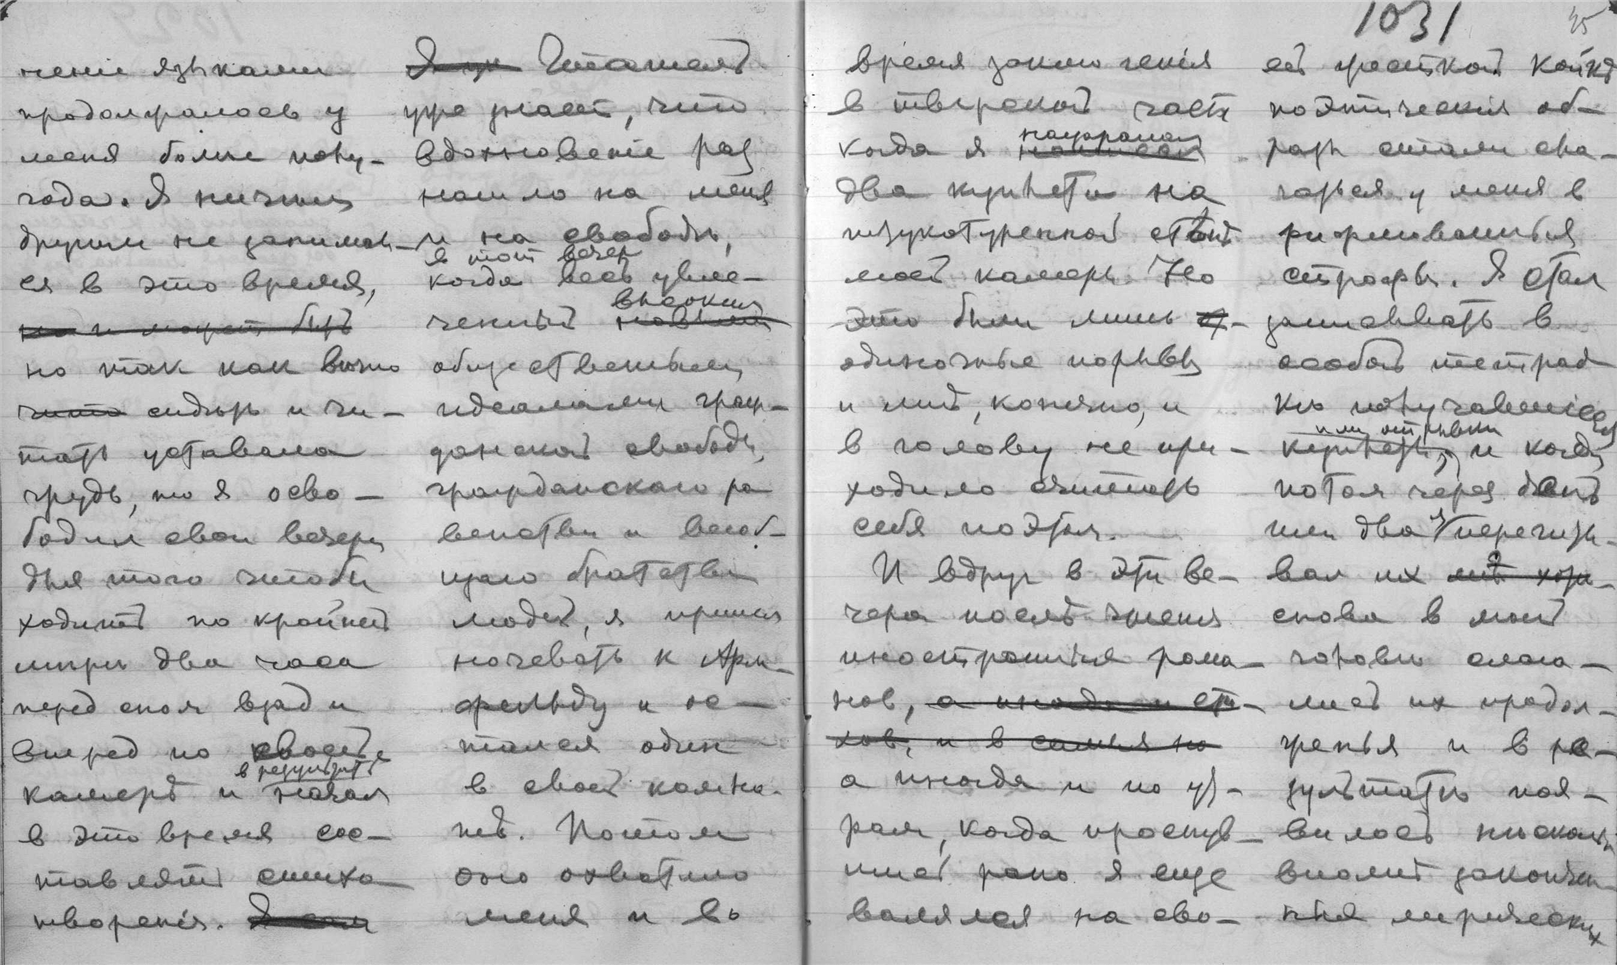 1031
35
неніе языками
продолжалось у
меня болѣе полу-
года. Я ничѣмъ
другимъ не занимал-
ся в это время,
но и может быть
но так как вѣчно
что сидѣть и чи-
тать уставала
грудь, то я осво-
бодил свои вечера
для того чтобы
ходить по крайней
мѣрѣ два часа
перед сном взад и
вперед по своей
в результатѣ
камерѣ и начал
в это время сос-
тавлять стихо-
творенія. Я сам
Я уж Читатель
уже знает, что
вдохновеніе раз
нашло на меня
и на свободѣ,
в тот вечер
когда весь увле-
высокими
ченный новыми
общественными
идеалами граж-
данской свободы,
гражданскаго ра
венства и всеоб-
щаго братства
людей, я пришел
ночевать к Арм-
фельду и ос-
тался один
в своей комна-
тѣ. Потом
оно охватило
меня и во
время заключенія
в тверской части
нацарапал
когда я написал
два куплета на
штукатуренной стѣнѣ
моей камеры. Но
это были лишь
одиночные порывы
и мнѣ, конечно, и
в голову не при-
ходило считать
себя поэтом.
И вдруг в эти ве-
чера послѣ чтенія
иностранных рома-
нов, а иногда и сти-
хов, и в самыя по
а иногда и по ут-
рам, когда проснув-
шись рано я еще
валялся на сво-
ей жесткой койкѣ
поэтическія об-
разы стали сла-
гаться у меня в
рифмованныя
строфы. Я стал
записывать в
особой тетрад-
кѣ получавшіеся
или отрывки
куплеты, и когда
потом через день
или два я перечиты-
вал их
снова в моей
головѣ слага-
лись их продол-
женья и в ре-
зультатѣ поя-
вилось нѣсколько
вполнѣ закончен-
ных лирических